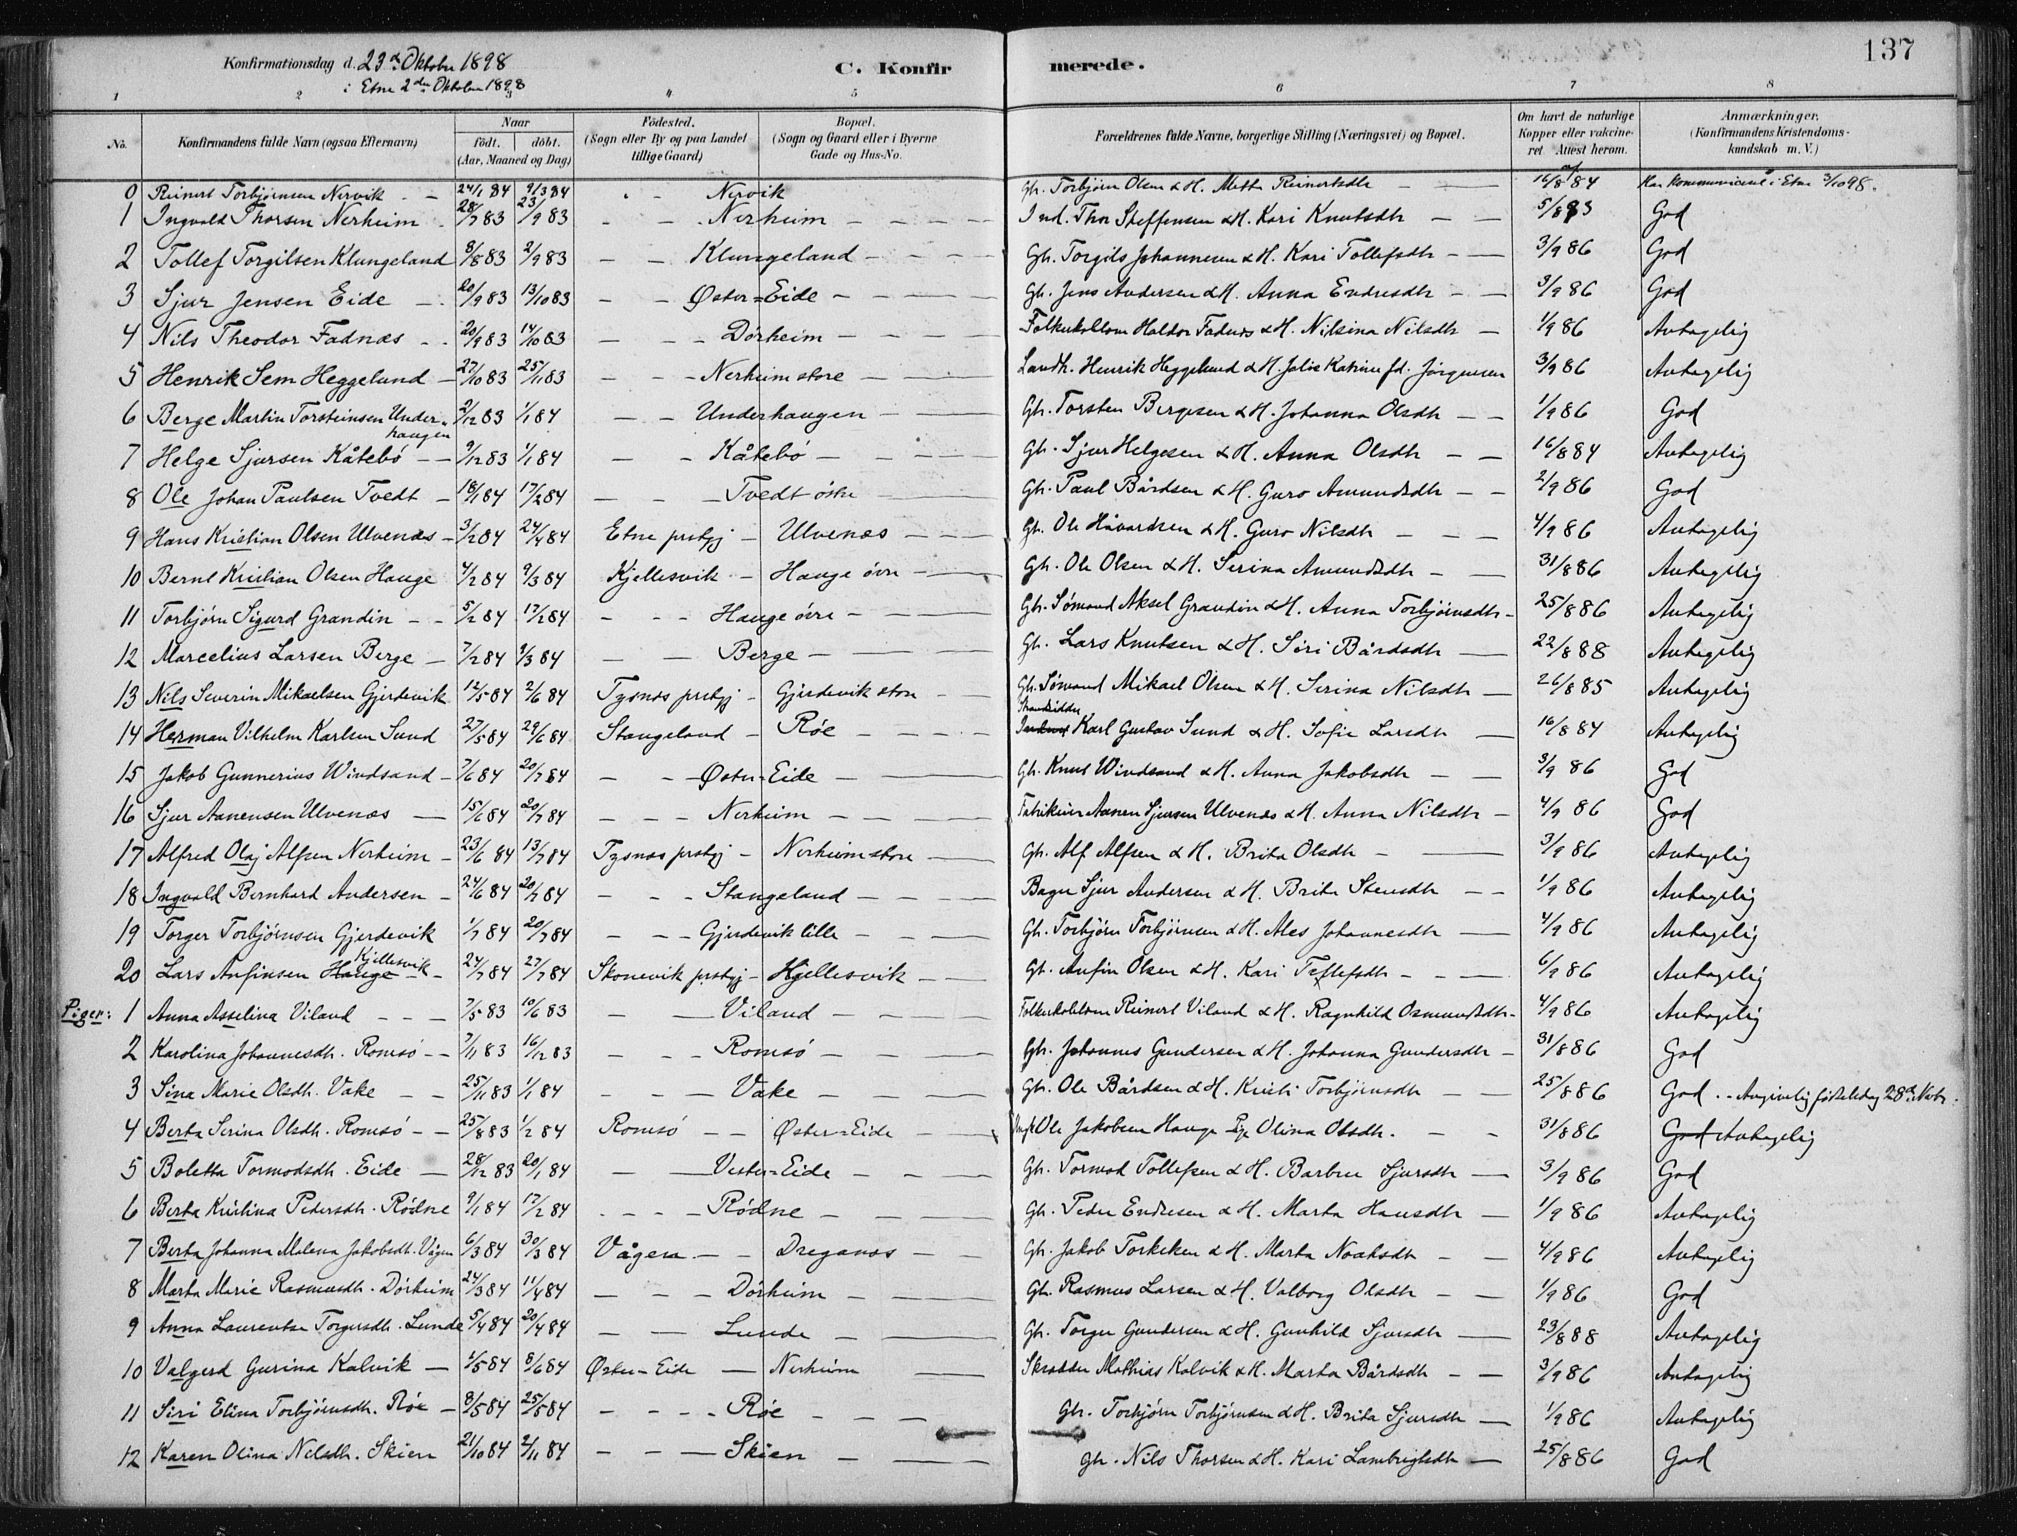 137
Konfirmationsdag d. 23de Oktober 1898 C. Konfirmerede.
i Etne 2den Oktober 1898
1 2 3 4 5 6 7 8
No. Konfirmandens fulde Navn (ogsaa Efternavn) Naar födt. döbt. (Aar, Maaned og Dag) Födested. (Sogn eller By og paa Landet tillige Gaard) Bopæl. (Sogn og Gaard eller i Byerne Gade og Hus-No. Forældrenes fulde Navne, borgerlige Stilling (Næringsvei) og Bopæl. Om havt de naturlige Kopper eller vakcineret. Attest herom. Anmærkninger. (Konfirmandens Kristendomskundskab m. V.)
0 Reinert Torbjörnsen Nervik 24/1 84 9/3 84 - - Nervik Gbr. Torbjörn Olsen & H. Metta Reinertsdtr 16/8 84 Har kommuniceret i Etne 2/10 98.
1 Ingvald Thorsen Nerheim 28/7 83 23/9 83 - - Nerheim Ind. Thor Steffensen & H. Kari Knutsdtr 5/8 93 God
2 Tollef Torgilsen Klungeland 8/8 83 2/9 83 - - Klungeland Gbr. Torgils Johannesen & H. Kari Tollefsdtr 3/9 86 God
3 Sjur Jensen Eide 20/9 83 13/10 83 - - Øster=Eide Gbr. Jens Andersen & H. Anna Endresdtr 3/9 86 God
4 Nils Theodor Fadnæs 20/9 83 14/10 83 - - Dörheim Folkeskollærer Haldor Fadnæs & H. Nilsina Nilsdtr 1/9 86 Antagelig
5 Henrik Sem Heggelund 27/10 83 25/11 83 - - Nerheim store Landh. Henrik Heggelund & H. Jalie Katrine fd. Jörgensen 3/9 86 Antagelig
6 Berge Martin Torsteinsen Underhaugen 2/12 83 1/1 84 - - Underhaugen Gbr. Torsten Bergesen & H. Johanna Olsdtr 1/9 86 God
7 Helge Sjursen Kåtebö 9/12 83 1/1 84 - - Kåtebö Gbr. Sjur Helgesen & H. Anna Olsdtr 16/8 84 Antagelig
8 Ole Johan Paulsen Tvedt 18/1 84 17/2 84 - - Tvedt östre Gbr. Paul Bårdsen & H. Guro Amundsdtr 2/9 86 God
9 Hans Kristian Olsen Ulvenæs 3/2 84 24/4 84 Etne prstgj - Ulvenæs Gbr. Ole Håvardsen & H. Guro Nilsdtr 4/9 86 Antagelig
10 Bernt Kristian Olsen Hauge 4/2 84 9/3 84 Kjellesvik - Hauge övre Gbr. Ole Olsen & H. Serina Amundsdtr 31/8 86 Antagelig
11 Torbjörn Sigurd Grandin 5/2 84 17/2 84 - - Hauge övre Gbr. Sömand Aksel Grandin & H. Anna Torbjörnsdtr 25/8 86 Antagelig
12 Marcelius Larsen Berge 7/2 84 9/3 84 - - Berge Gbr. Lars Knutsen & H. Siri Bårdsdtr 22/8 88 Antagelig
13 Nils Severin Mikaelsen Gjerdevik 12/5 84 2/6 84 Tysnæs prstgj - Gjerdevik store Gbr. Sömand Mikael Olsen & H. Serina Nilsdtr 26/8 85 Antagelig
14 Herman Vilhelm Karlsen Sund 27/5 84 29/6 84 Stangeland - Røe Strandsidder Karl Gustav Sund & H. Sofie Larsdtr 16/8 84 Antagelig
15 Jakob Gunnerius Windsand 7/6 84 20/7 84 - - Øster=Eide Gbr. Knut Windsand & H. Anna Jakobsdtr 3/9 86 God
16 Sjur Aanensen Ulvenæs 15/6 84 20/7 84 - - Nerheim Fabrikeier Aanen Sjursen Ulvenæs & H. Anna Nilsdtr 4/9 86 God
17 Alfred Olaj Alfsen Nerheim 23/6 84 13/7 84 Tysnæs prstgj - Nerheim store Gbr. Alf Alfsen & H. Brita Olsdtr 3/9 86 Antagelig
18 Ingvald Bernhard Andersen 24/6 84 20/7 84 - - Stangeland Bager Sjur Andersen & H. Brita Stensdtr 1/9 86 Antagelig
19 Torger Torbjörnsen Gjerdevik 1/7 84 20/7 84 - - Gjerdevik lille Gbr. Torbjörn Torbjörnsen & H. Ales Johannesdtr 4/9 86 Antagelig
20 Lars Anfinsen Hauge Kjellesvik 24/7 84 27/7 84 Skonevik prstgj - Kjellesvik Gbr. Anfin Olsen & H. Kari Tollefsdtr 6/9 86 Antagelig
Piger: 1 Anna Asselina Viland 7/5 83 10/6 83 - Viland Folkeskollærer Reinert Viland & H. Ragnhild Osmundsdtr 4/9 86 Antagelig
2 Karolina Johannesdtr. Romsö 7/11 83 16/12 83 - - Romsö Gbr. Johannes Gundersen & H. Johanna Gundersdtr 31/8 86 God
3 Sina Marie Olsdtr. Vake 25/11 83 1/1 84 - - Vake Gbr. Ole Bårdsen & H. Kristi Torbjörnsdtr 25/8 86 God. - Angivelig födselsdag 28de Novbr.
4 Berta Serina Olsdtr. Romsö 25/8 83 1/2 84 Romsö - - Øster=Eide Ungk. Ole Jakobsen Hauge Pige Olina Olsdtr. 31/8 86 God Antagelig
5 Boletta Tormodsdtr. Eide 28/12 83 20/1 84 - Vester=Eide Gbr. Tormod Tollefsen & H. Barbru Sjursdtr 3/9 86 God
6 Berta Kristina Pedersdtr. Rödne 9/1 84 17/2 84 - - Rödne Gbr. Peder Endresen & H. Marta Hansdtr 1/9 86 Antagelig
7 Berta Johanna Malena Jakobsdtr. Vågen 6/3 84 30/3 84 Vågen - - Dreganæs Gbr. Jakob Torkelsen & H. Marta Noaksdtr 4/9 86 Antagelig
8 Marta Marie Rasmusdtr. Dörheim 24/3 84 11/4 84 - - Dörheim Gbr. Rasmus Larsen & H. Valborg Olsdtr 1/9 86 God
9 Anna Laurentse Torgersdtr. Lunde 5/4 84 20/4 84 - - Lunde Gbr. Torger Gundersen & H. Gunhild Sjursdtr 23/8 88 Antagelig
10 Valgerd Gurina Kalvik 1/5 84 8/6 84 Øster-Eide - Nerheim Skrædder Mathias Kalvik & H. Marta Bårdsdtr 3/9 86 Antagelig
11 Siri Elina Torbjörnsdtr. Røe 8/5 84 25/5 84 - - Røe Gbr. Torbjörn Torbjörnsen & H. Brita Sjursdtr 1/9 86 Antagelig
12 Karen Olina Nilsdtr. Skien 21/10 84 2/11 84 - - Skien Gbr. Nils Thorsen & H. Kari Lambrigtsdtr 25/8 86 God